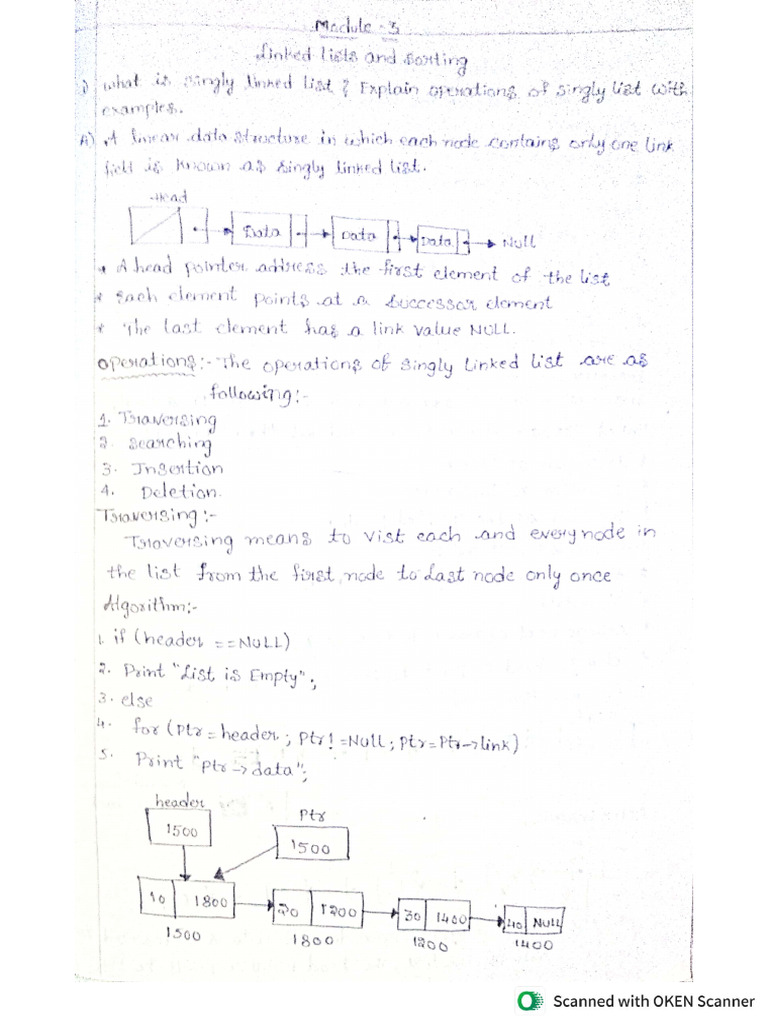 Module - 3
Linked lists and Sorting
1) what is singly linked list? Explain operations of singly list with
examples.
A) A linear data structure in which each node contains only one link
field is known as singly linked list.
Head
Data Data Data Null
* A head pointer address the first element of the list
* Each element points at a successor element
* The last element has a link value NULL.
Operations:- The operations of singly linked list are as
following:-
1. Traversing
2. Searching
3. Insertion
4. Deletion.
Traversing:-
Traversing means to vist each and every node in
the list from the first node to last node only once
Algorithm:-
1. if (header ==NULL)
2. Print "List is Empty";
3. else
4. for (Ptr = header ; Ptr! =NULL ; Ptr=Ptr->link)
5. Print "Ptr -> data";
header
Ptr
1500
1500
10 1800 20 1200 30 1400 40 NULL
1500 1800 1200 1400
Scanned with OKEN Scanner